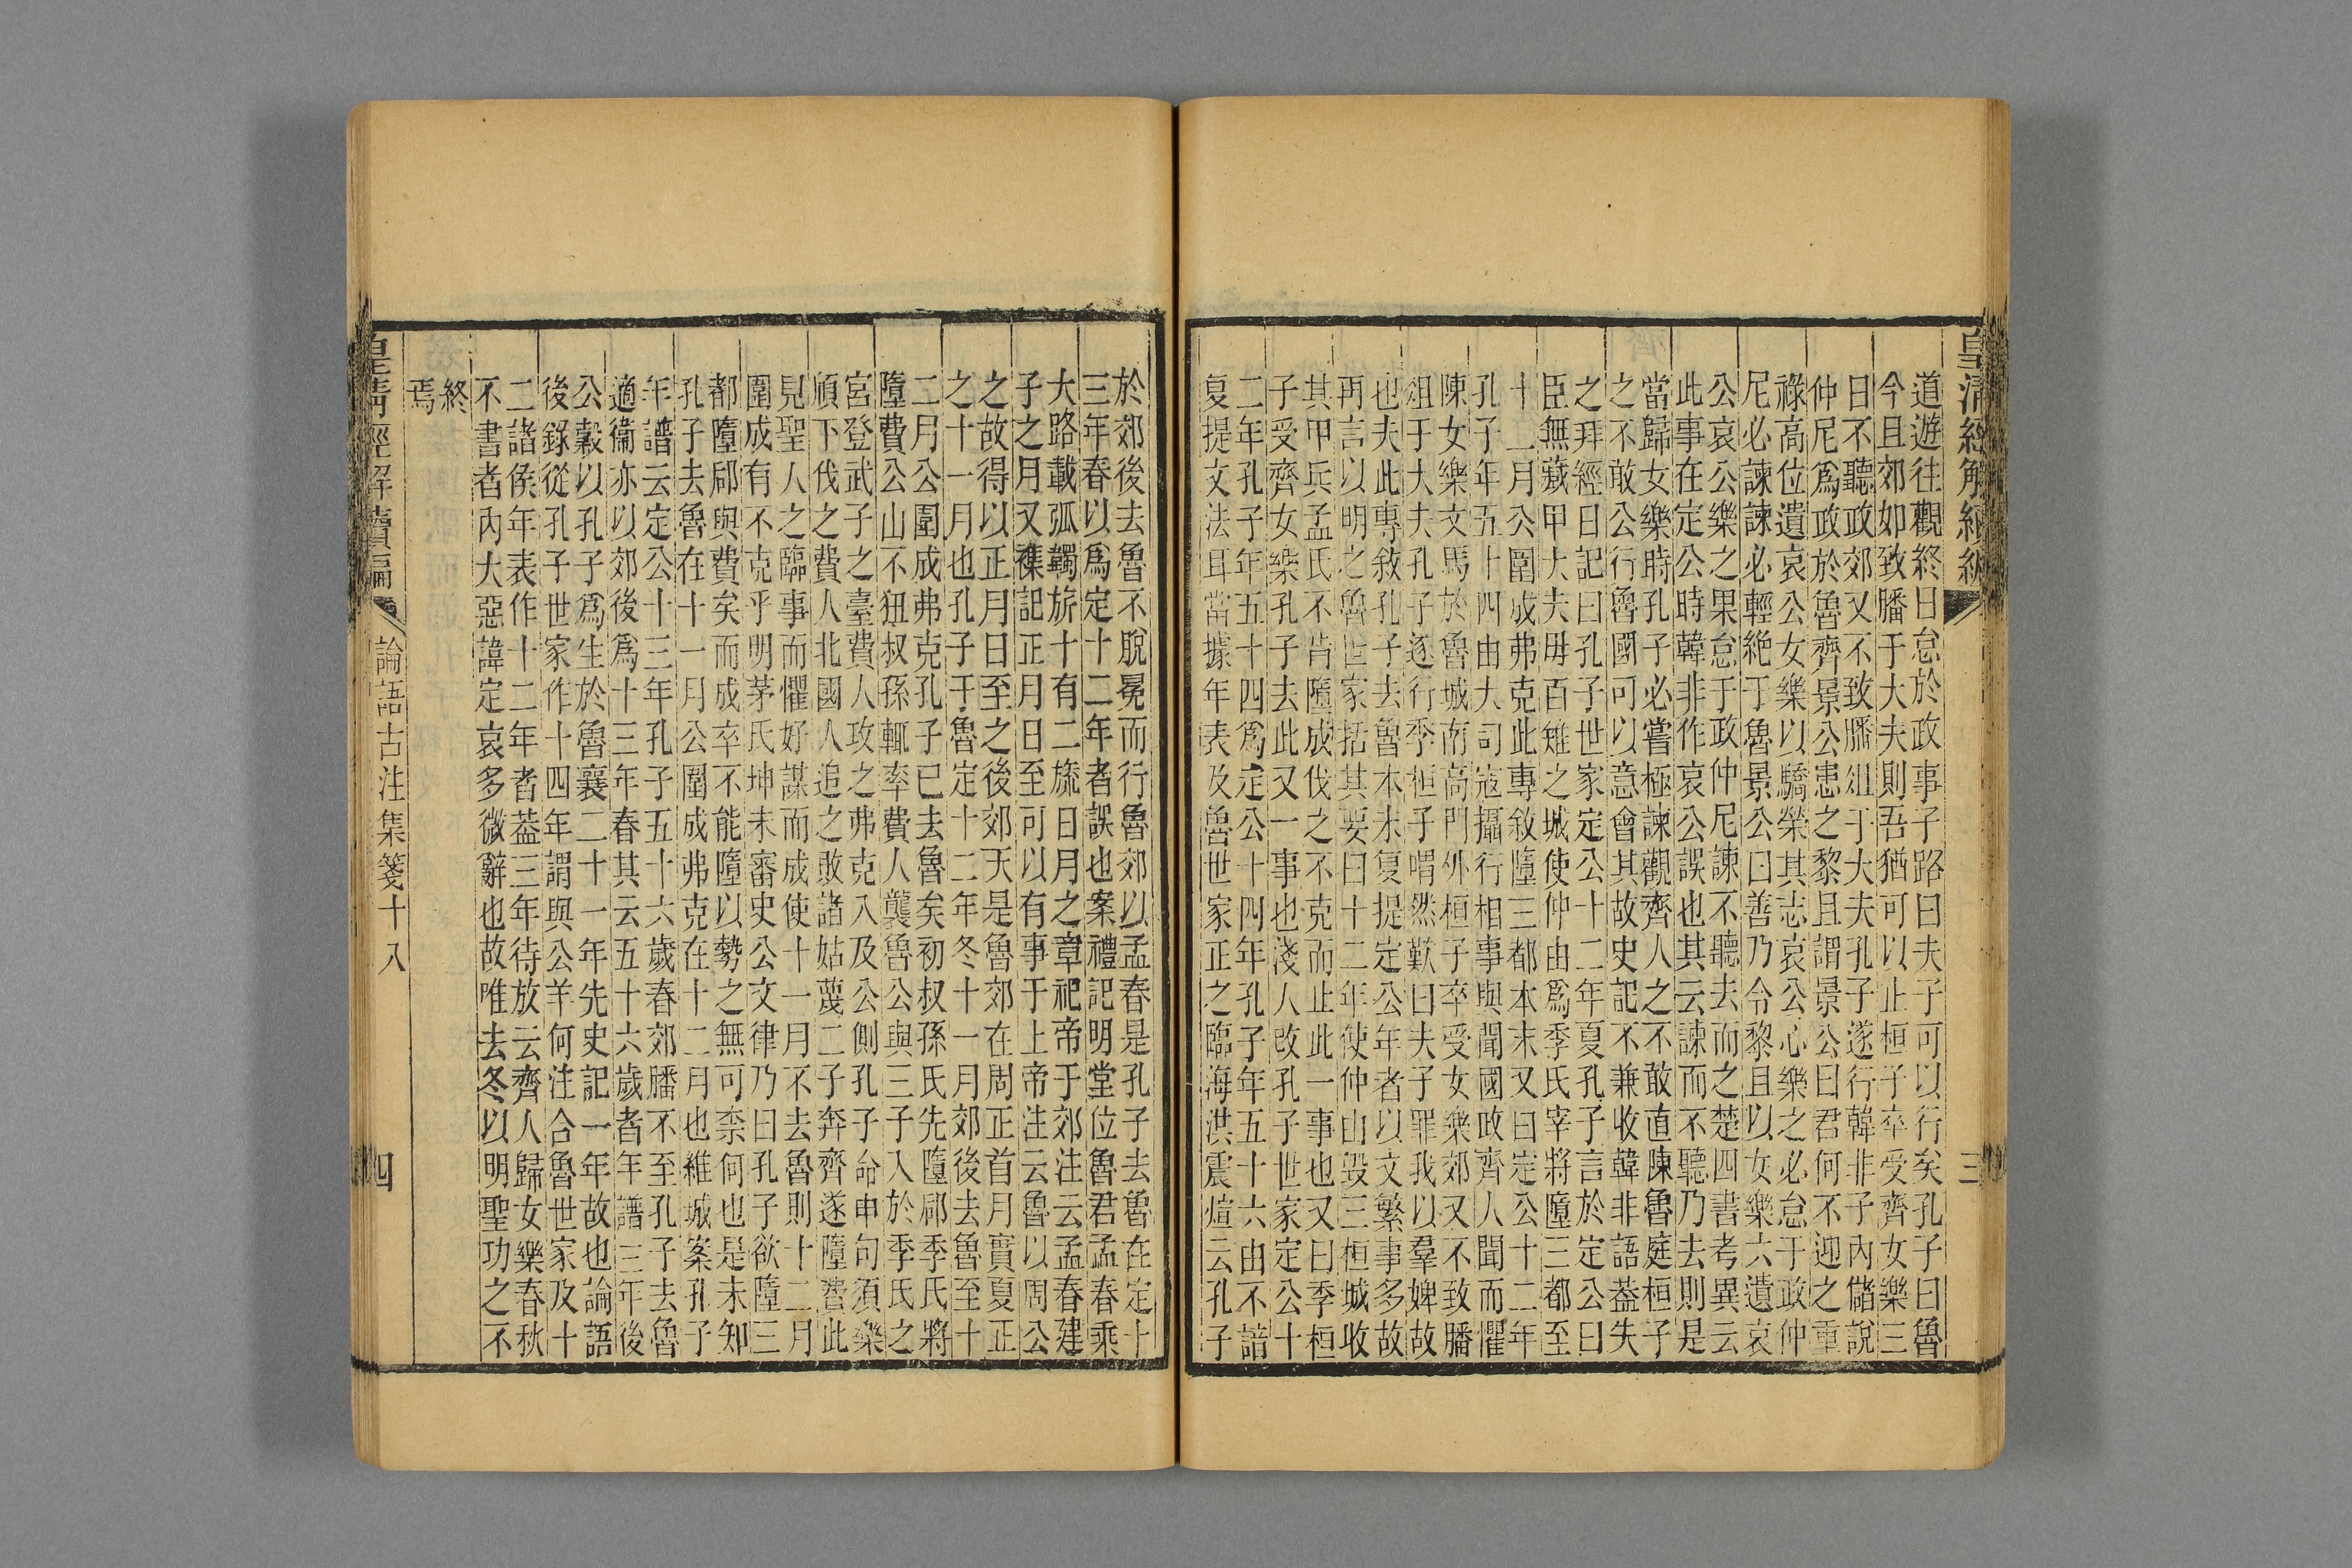 皇清經解續編
三
道遊往觀終日怠於政事子路曰夫子可以行矣孔子曰魯
今且郊如致膰于大夫則吾猶可以止桓子卒受齊女樂三
日不聽政郊又不致膰俎于大夫孔子遂行韓非子內儲說
仲尼爲政於魯齊景公患之黎且謂景公曰君何不迎之重
祿高位遺哀公女樂以驕榮其志哀公心樂之必怠于政仲
尼必諫諫必輕絶于魯景公曰善乃令黎且以女樂六遺哀
公哀公樂之果怠于政仲尼諫不聽去而之楚四書考異云
此事在定公時韓非作哀公誤也其云諫而不聽乃去則是
當歸女樂時孔子必嘗極諫觀齊人之不敢直陳魯庭桓子
之不敢公行魯國可以意會其故史記不兼收韓非語葢失
之拜經日記曰孔子世家定公十二年夏孔子言於定公曰
臣無藏甲大夫毋百雉之城使仲由爲季氏宰將墮三都至
十二月公圍成弗克此專敘墮三都本末又曰定公十二年
孔子年五十四由大司寇攝行相事與聞國政齊人聞而懼
陳女樂文馬於魯城南高門外桓子卒受女樂郊又不致膰
俎于大夫孔子遂行季桓子喟然歎曰夫子罪我以羣婢故
也夫此專敘孔子去魯本末复提定公年者以文繁事多故
再言以明之魯世家括其要曰十二年使仲由毀三桓城收
其甲兵孟氏不肯墮成伐之不克而止此一事也又曰季桓
子受齊女樂孔子去此又一事也淺人改孔子世家定公十
二年孔子年五十四爲定公十四年孔子年五十六由不諳
复提文法耳當據年表及魯世家正之臨海洪震煊云孔子
於郊後去魯不脫冕而行魯郊以孟春是孔子去魯在定十
三年春以爲定十二年者誤也案禮記明堂位魯君孟春乘
大路載弧韣旂十有二旒日月之章祀帝于郊注云孟春建
子之月又襍記正月日至可以有事于上帝注云魯以周公
之故得以正月日至之後郊天是魯郊在周正首月實夏正
之十一月也孔子于魯定十二年冬十一月郊後去魯至十
二月公圍成弗克孔子已去魯矣初叔孫氏先墮郈季氏將
墮費公山不狃叔孫輒率費人襲魯公與三子入於季氏之
宮登武子之臺費人攻之弗克入及公側孔子命申句須樂
頎下伐之費人北國人追之敗諸姑蔑二子奔齊遂墮費此
見聖人之臨事而懼好謀而成使十一月不去魯則十二月
圍成有不克乎明茅氏坤未審史公文律乃曰孔子欲墮三
都墮郈與費矣而成卒不能墮以勢之無可柰何也是未知
孔子去魯在十一月公圍成弗克在十二月也維城案孔子
年譜云定公十三年孔子五十六歲春郊膰不至孔子去魯
適衞亦以郊後爲十三年春其云五十六歲者年譜三年後
公穀以孔子爲生於魯襄二十一年先史記一年故也論語
後錄從孔子世家作十四年謂與公羊何注合魯世家及十
二諸侯年表作十二年者葢三年待放云齊人歸女樂春秋
不書者內大惡諱定哀多微辭也故唯去冬以明聖功之不
終
焉
皇清經解續編
論語古注集箋十八
四